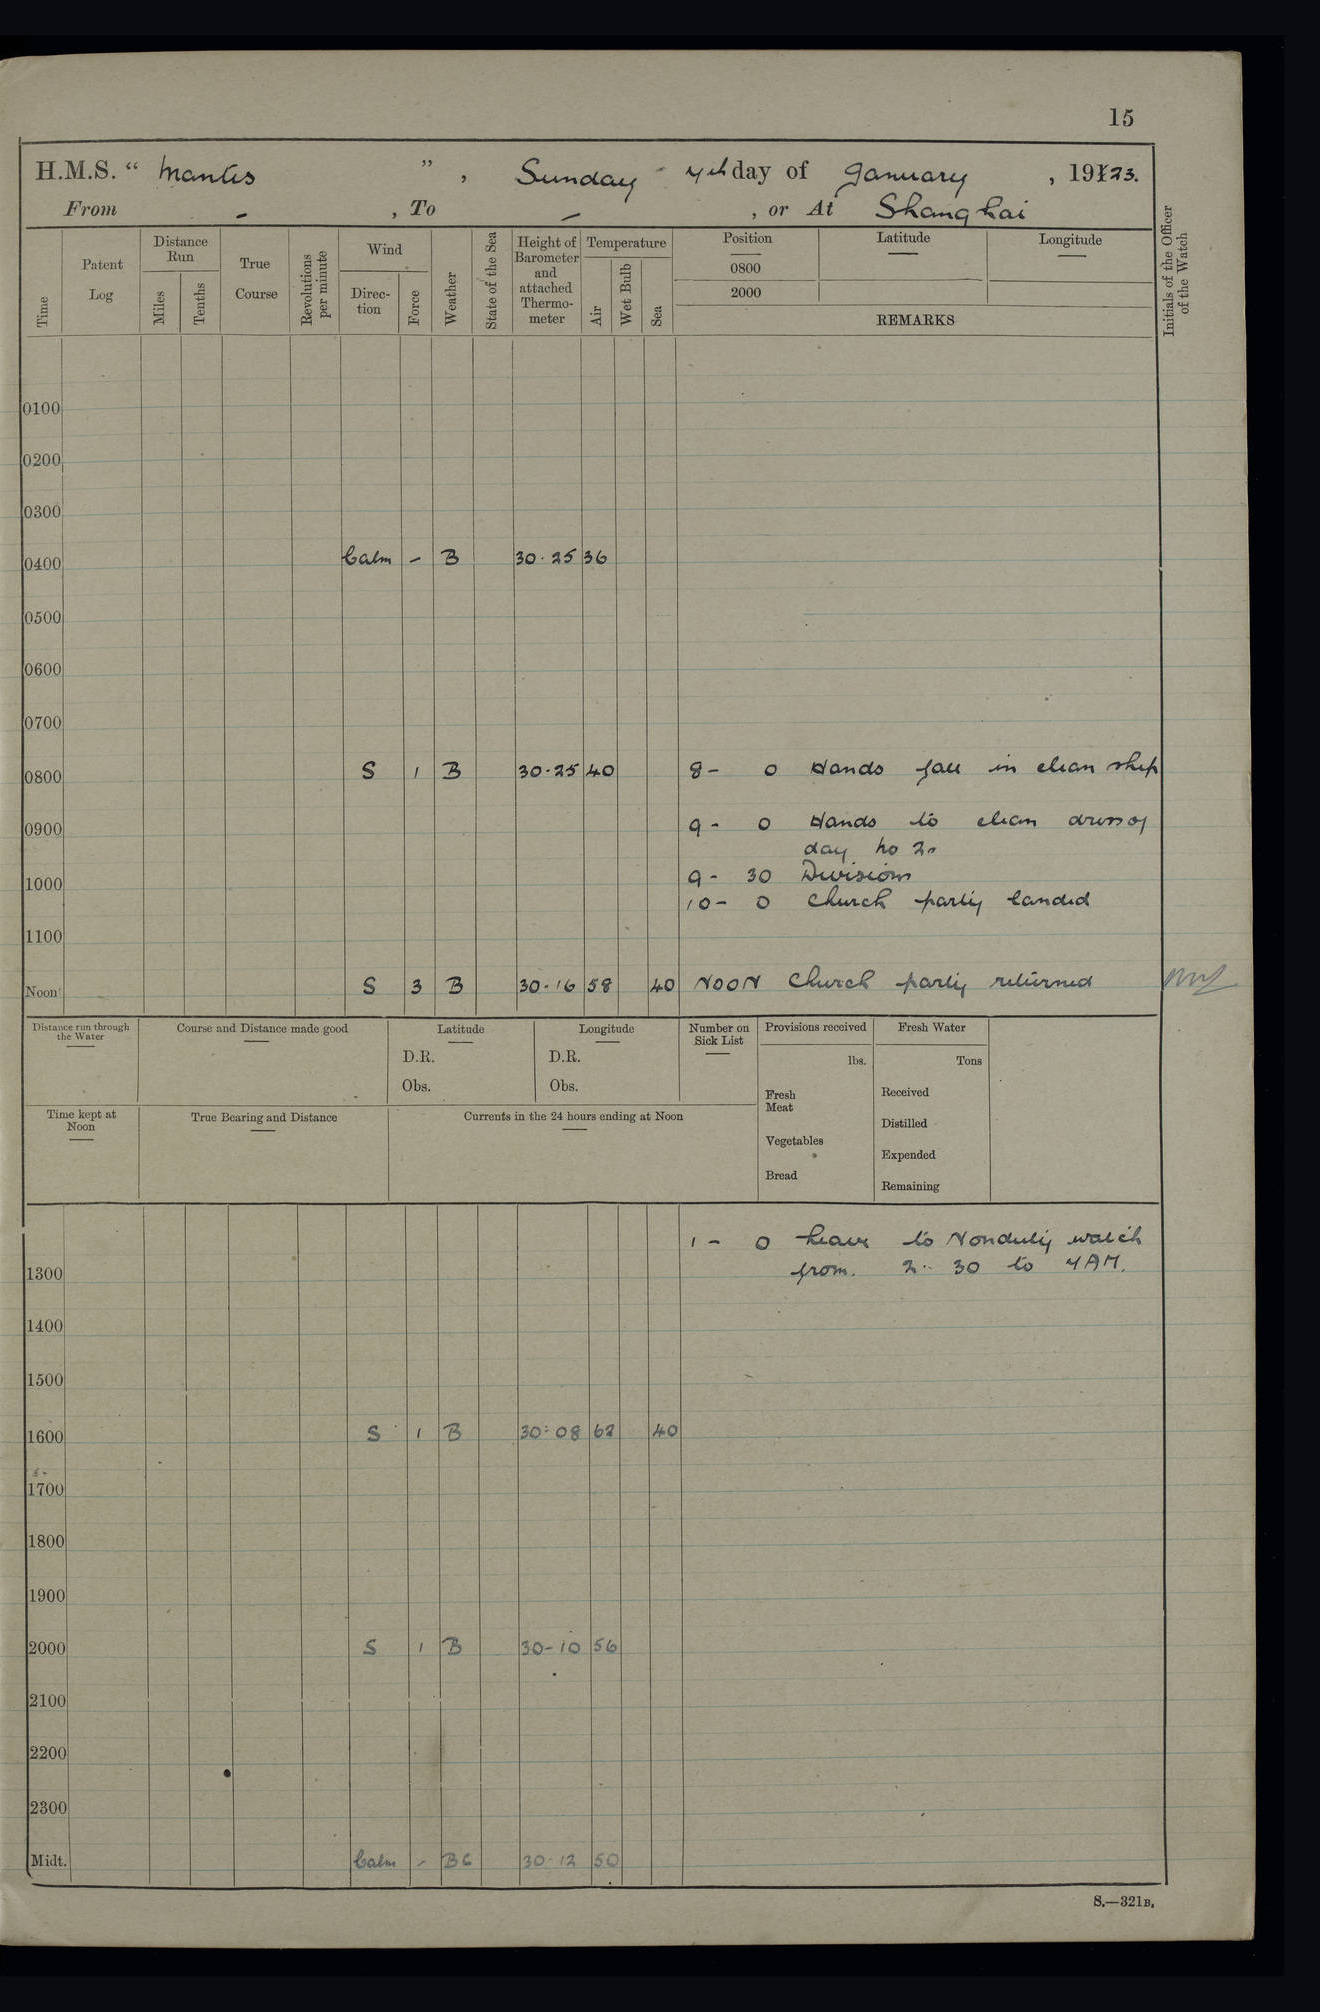 15
H.M.S. " Mantis ", Sunday 7th day of January, 1923.
From - , To - , or At Shanghai
Time
Patent Log
Distance Run
Miles
Tenths
True Course
Revolutions per minute
Wind
Direction
Force
Weather
State of the Sea
Height of Barometer and attached Thermometer
Temperature
Air
Wet Bulb
Sea
Position
0800
2000
Latitude
Longitude
REMARKS
Initials of the Officer of the Watch
0100
0200
0300
0400 Calm - B 30.25 36
0500
0600
0700
0800 S 1 B 30.25 40 8 - 0 Hands fall in clean ship
0900 9 - 0 Hands to clean dress of
day No 2.
9 - 30 Divisions
1000 10 - 0 Church party landed
1100
Noon S 3 B 30.16 58 40 NOON Church party returned
Distance run through the Water
Course and Distance made good
Latitude
D.R.
Obs.
Longitude
D.R.
Obs.
Number on Sick List
Provisions received
lbs.
Fresh Meat
Vegetables
Bread
Fresh Water
Tons
Received
Distilled
Expended
Remaining
Time kept at Noon
True Bearing and Distance
Currents in the 24 hours ending at Noon
1 - 0 Leave to Nonduty watch
1300 from. 2.30 to 7AM.
1400
1500
1600 S 1 B 30.08 62 40
1700
1800
1900
2000 S 1 B 30-10 56
2100
2200
2300
Midt. Calm - BC 30.12 50
S.—321B.